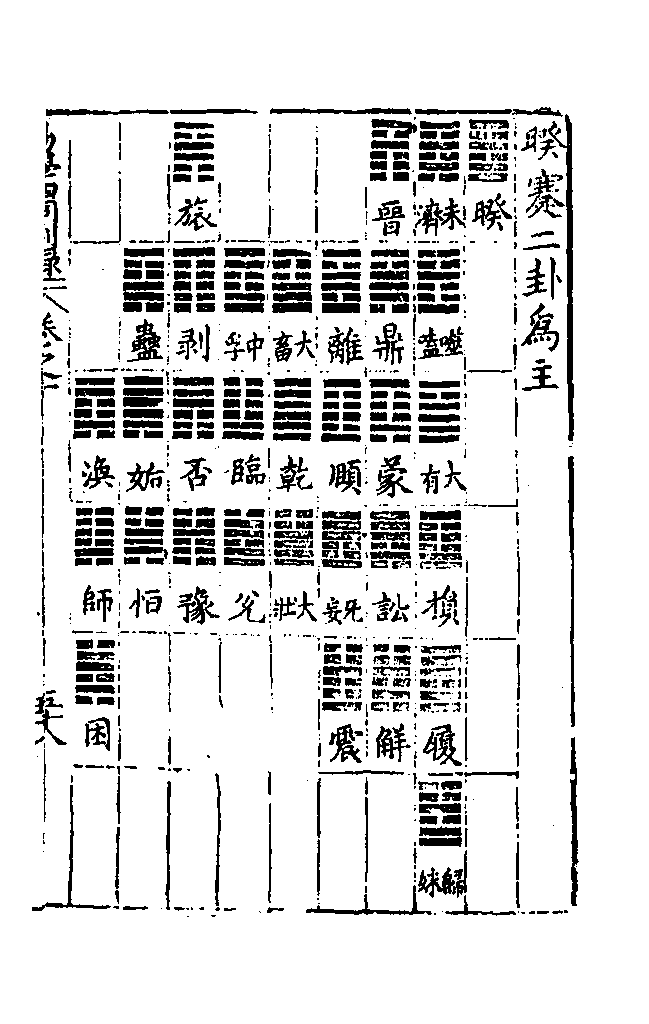 暌蹇二卦爲主
暌
未濟 噬嗑 大有 損 履 歸妹
晉 鼎 蒙 訟 解
離 頤 无妄 震
大畜 乾 大壯
中孚 臨 兌
旅 剥 否 豫
蠱 姤 恒
渙 師 困